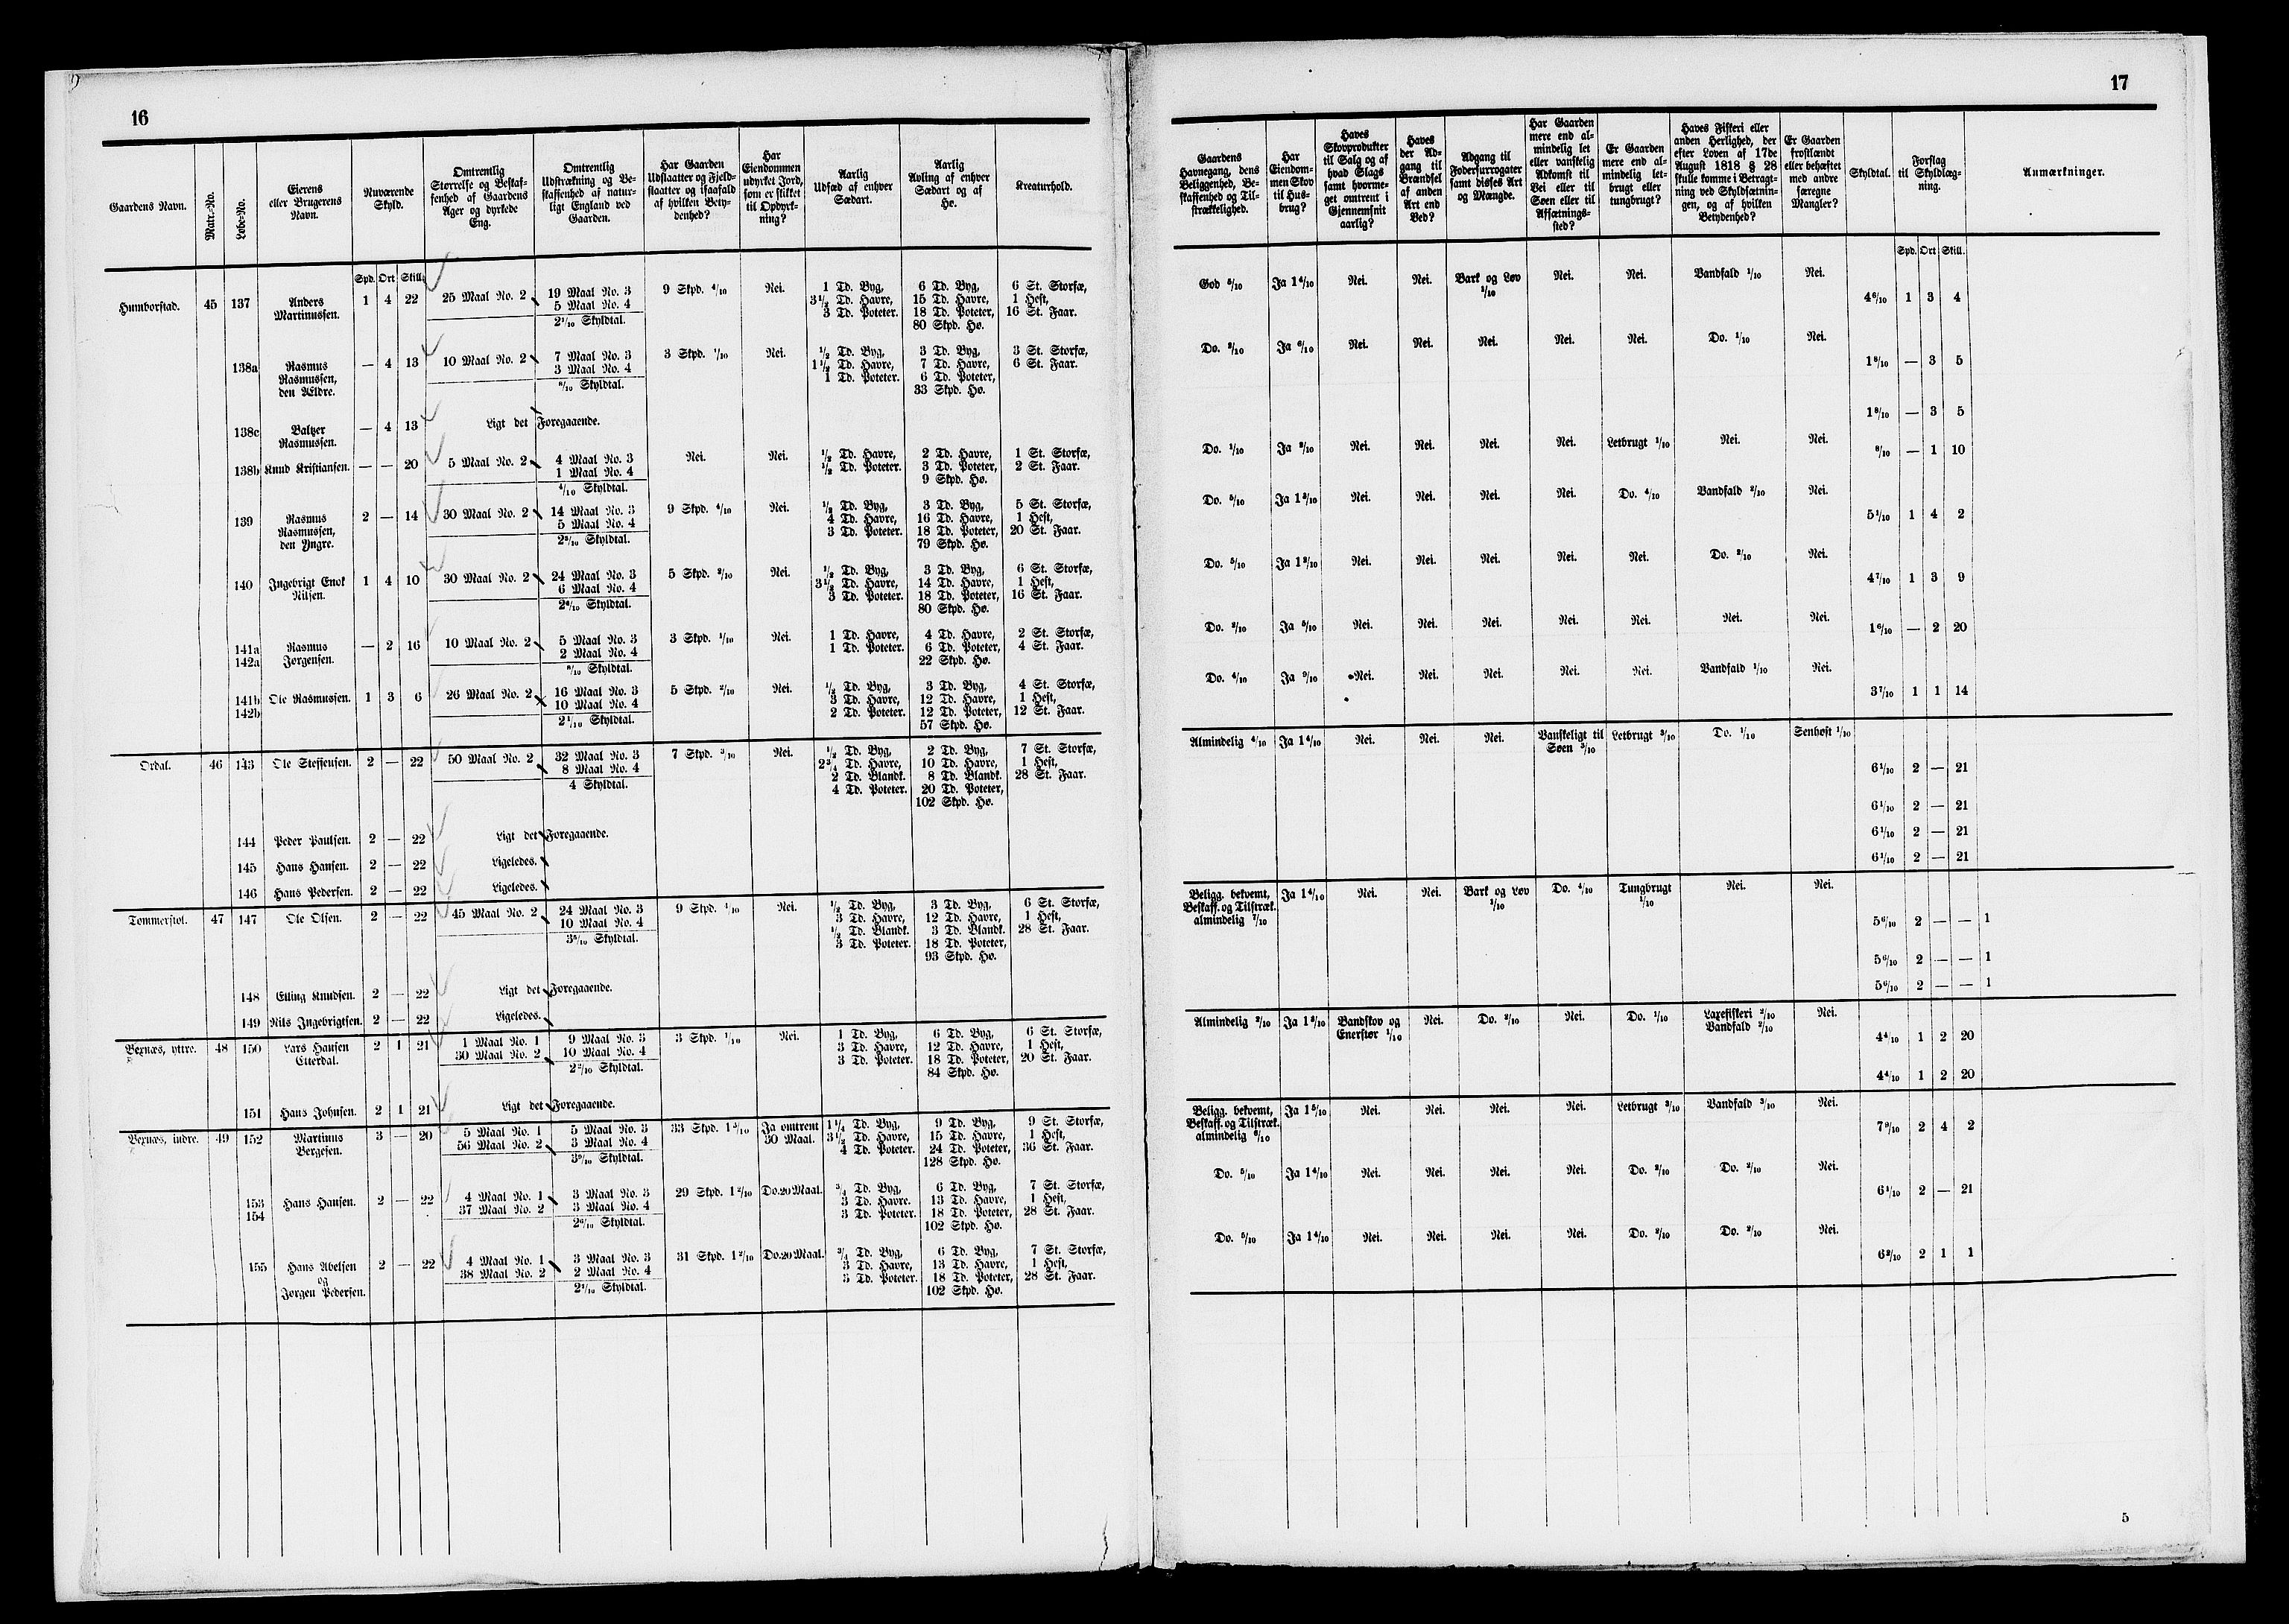 16
Gaardens Navn. | Matr.-No. | Løbe-No. | Eierens eller Brugerens Navn. | Nuværende Skyld. | Omtrentlig Størrelse og Beskaffenhed af Gaardens Ager og dyrkede Eng. | Omtrentlig Udstrækning og Beskaffenhed af naturligt England ved Gaarden. | Har Gaarden Udslaatter og Fjeldslaatter og isaafald af hvilken Betydenhed? | Har Eiendommen udyrket Jord, som er skikket til Opdyrkning? | Aarlig Udsæd af enhver Sædart. | Aarlig Avling af enhver Sædart og af Hø. | Kreaturhold.
Spd. Ort Skill.
Humborstad. | 45 | 137 | Anders Martinussen. | 1 | 4 | 22 | 25 Maal No. 2 | 19 Maal No. 3 5 Maal No. 4 2 1/10 Skyldtal. | 9 Skpd. 4/10 | Nei. | 1 Td. Byg, 3 1/2 Td. Havre, 3 Td. Poteter. | 6 Td. Byg, 15 Td. Havre, 18 Td. Poteter, 80 Skpd. Hø. | 6 St. Storfæ, 1 Hest, 16 St. Faar.
138a | Rasmus Rasmussen, den Ældre. | — | 4 | 13 | 10 Maal No. 2 | 7 Maal No. 3 3 Maal No. 4 Skyldtal. | 3 Skpd. 1/10 | Nei. | 1/2 Td. Byg, 1 1/2 Td. Havre, 1 Td. Poteter. | 3 Td. Byg, 7 Td. Havre, 6 Td. Poteter, 33 Skpd. Hø. | 3 St. Storfæ, 6 St. Faar.
138c | Baltzer Rasmussen. | — | 4 | 13 | Ligt det Foregaaende.
138b | Knud Kristiansen. | — | — | 20 | 5 Maal No. 2 | 4 Maal No. 3 1 Maal No. 4 4/10 Skyldtal. | Nei. | Nei. | 1/2 Td. Havre, 1/2 Td. Poteter. | 2 Td. Havre, 3 Td. Poteter, 9 Skpd. Hø. | 1 St. Storfæ, 2 St. Faar.
139 | Rasmus Rasmussen, den Yngre. | 2 | — | 14 | 30 Maal No. 2 | 14 Maal No. 3 5 Maal No. 4 Skyldtal. | 9 Skpd. 4/10 | Nei. | 1/2 Td. Byg, 4 Td. Havre, 3 Td. Poteter. | 3 Td. Byg, 16 Td. Havre, 18 Td. Poteter, 79 Skpd. Hø. | 5 St. Storfæ, 1 Hest, 20 St. Faar.
140 | Ingebrigt Enok Nilsen. | 1 | 4 | 10 | 30 Maal No. 2 | 24 Maal No. 3 6 Maal No. 4 Skyldtal. | 5 Skpd. 2/10 | Nei. | 1/2 Td. Byg, 3 1/2 Td. Havre, 3 Td. Poteter. | 3 Td. Byg, 14 Td. Havre, 18 Td. Poteter, 80 Skpd. Hø. | 6 St. Storfæ, 1 Hest, 16 St. Faar.
141a 142a | Rasmus Jørgensen. | — | 2 | 16 | 10 Maal No. 2 | 5 Maal No. 3 2 Maal No. 4 Skyldtal. | 3 Skpd. 1/10 | Nei. | 1 Td. Havre, 1 Td. Poteter. | 4 Td. Havre, 6 Td. Poteter, 22 Skpd. Hø. | 2 St. Storfæ, 4 St. Faar.
141b 142b | Ole Rasmussen. | 1 | 3 | 6 | 26 Maal No. 2 | 16 Maal No. 3 10 Maal No. 4 2 1/10 Skyldtal. | 5 Skpd. 2/10 | Nei. | 1/2 Td. Byg, 3 Td. Havre, 2 Td. Poteter. | 3 Td. Byg, 12 Td. Havre, 12 Td. Poteter, 57 Skpd. Hø. | 4 St. Storfæ, 1 Hest, 12 St. Faar.
Ordal. | 46 | 143 | Ole Steffensen. | 2 | — | 22 | 50 Maal No. 2 | 32 Maal No. 3 8 Maal No. 4 4 Skyldtal. | 7 Skpd. 3/10 | Nei. | 1/2 Td. Byg, 2 3/4 Td. Havre, 2 Td. Blandk. 4 Td. Poteter. | 2 Td. Byg, 10 Td. Havre, 8 Td. Blandk. 20 Td. Poteter, 102 Skpd. Hø. | 7 St. Storfæ, 1 Hest, 28 St. Faar.
144 | Peder Paulsen. | 2 | — | 22 | Ligt det Foregaaende.
145 | Hans Hansen. | 2 | — | 22 | Ligeledes.
146 | Hans Pedersen. | 2 | — | 22 | Ligeledes.
Tømmerstol. | 47 | 147 | Ole Olsen. | 2 | — | 22 | 45 Maal No. 2 | 24 Maal No. 3 10 Maal No. 4 Skyldtal. | 9 Skpd. 4/10 | Nei. | 1/2 Td. Byg, 3 Td. Havre, 1/2 Td. Blandk. 3 Td. Poteter. | 3 Td. Byg, 12 Td. Havre, 3 Td. Blandk. 18 Td. Poteter, 93 Skpd. Hø. | 6 St. Storfæ, 1 Hest, 28 St. Faar.
148 | Elling Knudsen. | 2 | — | 22 | Ligt det Foregaaende.
149 | Nils Ingebrigtsen. | 2 | — | 22 | Ligeledes.
Vexnæs, yttre. | 48 | 150 | Lars Hansen Otterdal. | 2 | 1 | 21 | 1 Maal No. 1 30 Maal No. 2 | 9 Maal No. 3 10 Maal No. 4 2 2/10 Skyldtal. | 3 Skpd. 1/10 | Nei. | 1 Td. Byg, 3 Td. Havre, 3 Td. Poteter. | 6 Td. Byg, 12 Td. Havre, 18 Td. Poteter, 84 Skpd. Hø. | 6 St. Storfæ, 1 Hest, 20 St. Faar.
151 | Hans Johnsen. | 2 | 1 | 21 | Ligt det Foregaaende.
Vexnæs, indre. | 49 | 152 | Martinus Bergesen. | 3 | — | 20 | 5 Maal No. 1 56 Maal No. 2 | 5 Maal No. 3 3 Maal No. 4 Skyldtal. | 33 Skpd. 1 3/10 | Ja omtrent 30 Maal. | 1 1/4 Td. Byg, 3 1/2 Td. Havre, 4 Td. Poteter. | 9 Td. Byg, 15 Td. Havre, 24 Td. Poteter, 128 Skpd. Hø. | 9 St. Storfæ, 1 Hest, 36 St. Faar.
153 154 | Hans Hansen. | 2 | — | 22 | 4 Maal No. 1 37 Maal No. 2 | 3 Maal No. 3 3 Maal No. 4 Skyldtal. | 29 Skpd. 1 2/10 | Do. 20 Maal. | 3/4 Td. Byg, 3 Td. Havre. 3 Td. Poteter. | 6 Td. Byg, 13 Td. Havre, 18 Td. Poteter. 102 Skpd. Hø. | 7 St. Storfæ, 1 Hest, 28 St. Faar.
155 | Hans Abelsen og Jørgen Pedersen. | 2 | — | 22 | 4 Maal No. 1 38 Maal No. 2 | 3 Maal No. 3 2 Maal No. 4 Skyldtal. | 31 Skpd. 1 2/10 | Do. 20 Maal. | 3/4 Td. Byg, 3 Td. Havre, 3 Td. Poteter. | 6 Td. Byg, 13 Td. Havre, 18 Td. Poteter, 102 Skpd. Hø. | 7 St. Storfæ, 1 Hest, 28 St. Faar.
17
Gaardens Havnegang, dens Beliggenhed, Beskaffenhed og Tilstrækkelighed. | Har Eiendommen Skov til Husbrug? | Haves Skovprodukter til Salg og af hvad Slags samt hvormeget omtrent i Gjennemsnit aarlig? | Haves der Adgang til Brændsel af anden Art end Ved? | Adgang til Fodersurrogater samt disses Art og Mængde. | Har Gaarden mere end almindelig let eller vanskelig Adkomst til Vei eller til Søen eller til Afsætningssted? | Er Gaarden mere end almindelig letbrugt eller tungbrugt? | Haves Fiskeri eller anden Herlighed, der efter Loven af 17de August 1818 § 28 skulle komme i Betragtning ved Skyldsætningen, og af hvilken Betydenhed? | Er Gaarden frostlændt eller behæftet med andre særegne Mangler? | Skyldtal. | Forslag til Skyldlægning. | Anmærkninger.
Spd. Ort Skill.
God 5/10 | Ja 1 4/10 | Nei. | Nei. | Bark og Løv 1/10 | Nei. | Nei. | Vandfald 1/10 | Nei. | 4 6/10 | 1 | 3 | 4
Do. 2/10 | Ja 6/10 | Nei. | Nei. | Nei. | Nei. | Nei. | Do. 1/10 | Nei. | 1 8/10 | — | 3 | 5
1 8/10 | — | 3 | 5
Do. 1/10 | Ja 2/10 | Nei. | Nei. | Nei. | Nei. | Letbrugt 1/10 | Nei. | Nei. | 8/10 | — | 1 | 10
Do. 5/10 | Ja 1 2/10 | Nei. | Nei. | Nei. | Nei. | Do. 4/10 | Vandfald 2/10 | Nei. | 5 1/10 | 1 | 4 | 2
Do. 5/10 | Ja 1 2/10 | Nei. | Nei. | Nei. | Nei. | Nei. | Do. 2/10 | Nei. | 4 7/10 | 1 | 3 | 9
Do. 2/10 | Ja 5/10 | Nei. | Nei. | Nei. | Nei. | Nei. | Nei. | Nei. | 1 6/10 | — | 2 | 20
Do. 4/10 | Ja 9/10 | Nei. | Nei. | Nei. | Nei. | Nei. | Vandfald 1/10 | Nei. | 3 7/10 | 1 | 1 | 14
Almindelig 4/10 | Ja 1 4/10 | Nei. | Nei. | Nei. | Vanskeligt til Søen 3/10 | Letbrugt 3/10 | Do. 1/10 | Senhøst 1/10 | 6 1/10 | 2 | — | 21
6 1/10 | 2 | — | 21
6 1/10 | 2 | — | 21
6 1/10 | 2 | — | 21
Beligg. bekvemt, Beskaff. og Tilstræk. almindelig 7/10 | Ja 1 4/10 | Nei. | Nei. | Bark og Løv 1/10 | Do. 4/10 | Tungbrugt 1/10 | Nei. | Nei. | 5 6/10 | 2 | — | — | 1
5 6/10 | 2 | — | — | 1
5 6/10 | 2 | — | — | 1
Almindelig 2/10 | Ja 1 2/10 | Bandskov og Enerstør 1/10 | Nei. | Do. 2/10 | Nei. | Do. 1/10 | Laxefiskeri 2/10 Vandfald 2/10 | Nei. | 4 4/10 | 1 | 2 | 20
4 4/10 | 1 | 2 | 20
Beligg. bekvemt, Beskaff. og Tilstræk. almindelig 6/10 | Ja 1 5/10 | Nei. | Nei. | Nei. | Nei. | Letbrugt 3/10 | Vandfald 3/10 | Nei. | 7 9/10 | 2 | 4 | 2
Do. 5/10 | Ja 1 4/10 | Nei. | Nei. | Nei. | Nei. | Do. 2/10 | Do. 2/10 | Nei. | 6 1/10 | 2 | — | 21
Do. 5/10 | Ja 1 4/10 | Nei. | Nei. | Nei. | Nei. | Do. 2/10 | Do. 2/10 | Nei. | 6 2/10 | 2 | 1 | 1
5